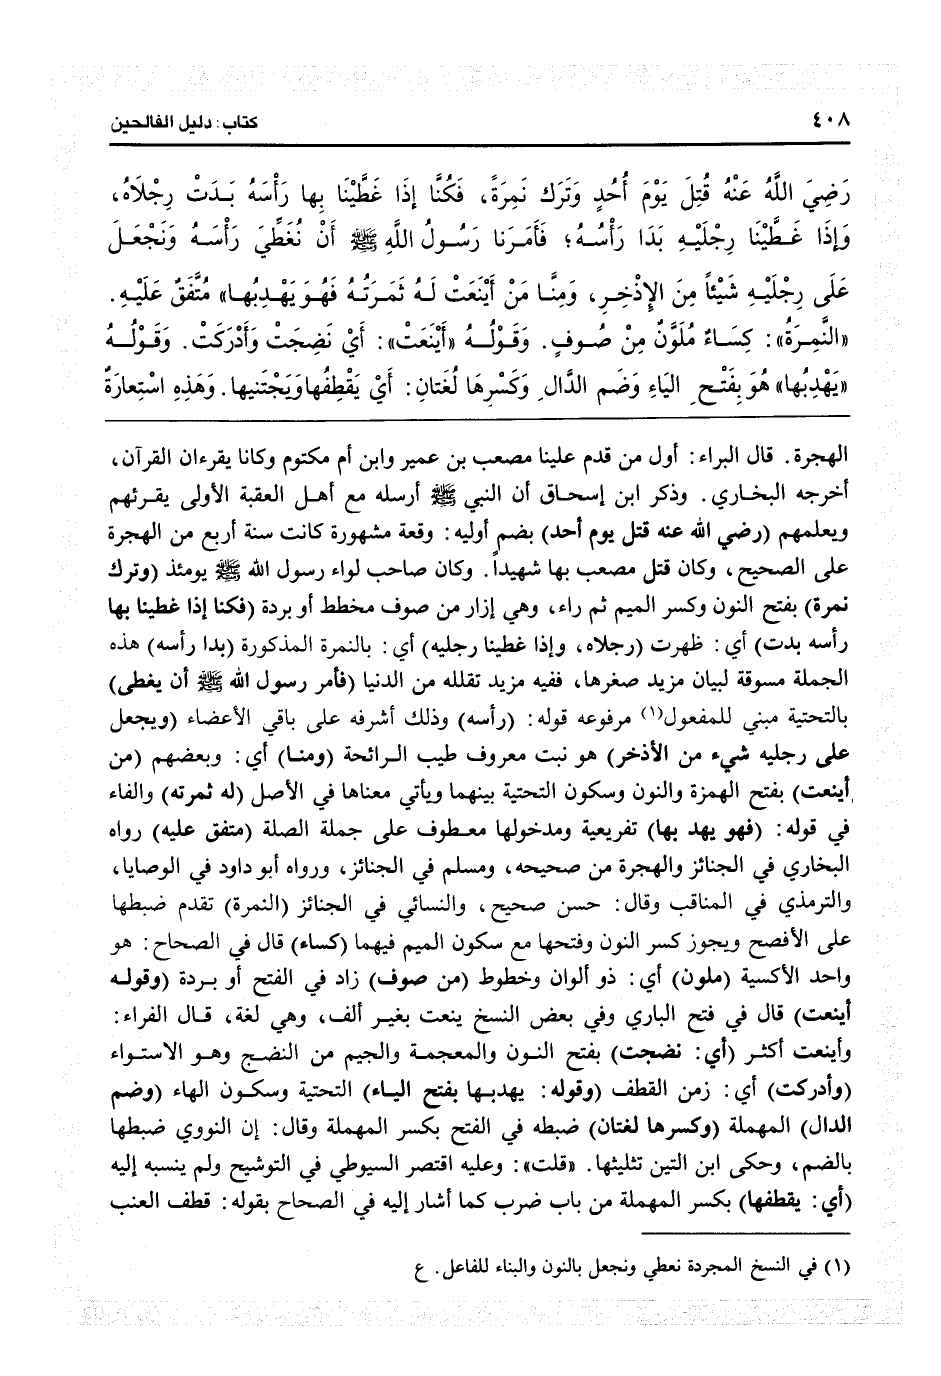 ٤٠٨ كتاب: دليل الفالحين
رَضِيَ اللَّهُ عَنْهُ قُتِلَ يَوْمَ أُحُدٍ وَتَرَكَ نَمِرَةً، فَكُنَّا إِذَا غَطَّيْنَا بِها رَأْسَهُ بَدَتْ رِجْلَاهُ،
وَإِذَا غَطَّيْنَا رِجْلَيْهِ بَدَا رَأْسُهُ؛ فَأَمَرَنَا رَسُولُ اللَّهِ ﷺ أَنْ نُغَطِّيَ رَأْسَهُ وَنَجْعَلَ
عَلَى رِجْلَيْهِ شَيْئاً مِنَ الإِذْخِرِ، وَمِنَّا مَنْ أَيْنَعَتْ لَهُ ثَمَرَتُهُ فَهُوَ يَهْدِبُها» مُتَّفَقٌ عَلَيْهِ.
«النَّمِرَةُ»: كِسَاءٌ مُلَوَّنٌ مِنْ صُوفٍ. وَقَوْلُهُ «أَيْنَعَتْ»: أَيْ نَضِجَتْ وَأَدْرَكَتْ. وَقَوْلُهُ
«يَهْدِبُها» هُوَ بِفَتْحِ اليَاءِ وَضَمِ الدَّالِ وَكَسْرِهَا لُغَتَانِ: أَيْ يَقْطِفُها وَيَجْتَنِيها. وَهَذِهِ اسْتِعارَةٌ
الهجرة. قال البراء: أول من قدم علينا مصعب بن عمير وابن أم مكتوم وكانا يقرءان القرآن،
أخرجه البخاري. وذكر ابن إسحاق أن النبي ﷺ أرسله مع أهل العقبة الأولى يقرئهم
ويعلمهم (رضي الله عنه قتل يوم أحد) بضم أوليه: وقعة مشهورة كانت سنة أربع من الهجرة
على الصحيح، وكان قتل مصعب بها شهيداً. وكان صاحب لواء رسول الله ﷺ يومئذ (وترك
نمرة) بفتح النون وكسر الميم ثم راء، وهي إزار من صوف مخطط أو بردة (فكنا إذا غطينا بها
رأسه بدت) أي: ظهرت (رجلاه، وإذا غطينا رجليه) أي: بالنمرة المذكورة (بدا رأسه) هذه
الجملة مسوقة لبيان مزيد صغرها، ففيه مزيد تقلله من الدنيا (فأمر رسول الله ﷺ أن يغطى)
بالتحتية مبني للمفعول(١) مرفوعه قوله: (رأسه) وذلك أشرفه على باقي الأعضاء (ويجعل
على رجليه شيء من الأذخر) هو نبت معروف طيب الرائحة (ومنا) أي: وبعضهم (من
أينعت) بفتح الهمزة والنون وسكون التحتية بينهما ويأتي معناها في الأصل (له ثمرته) والفاء
في قوله: (فهو يهد بها) تفريعية ومدخولها معطوف على جملة الصلة (متفق عليه) رواه
البخاري في الجنائز والهجرة من صحيحه، ومسلم في الجنائز، ورواه أبو داود في الوصايا،
والترمذي في المناقب وقال: حسن صحيح، والنسائي في الجنائز (النمرة) تقدم ضبطها
على الأفصح ويجوز كسر النون وفتحها مع سكون الميم فيهما (كساء) قال في الصحاح: هو
واحد الأكسية (ملون) أي: ذو ألوان وخطوط (من صوف) زاد في الفتح أو بردة (وقوله
أينعت) قال في فتح الباري وفي بعض النسخ ينعت بغير ألف، وهي لغة، قال الفراء:
وأينعت أكثر (أي: نضجت) بفتح النون والمعجمة والجيم من النضج وهو الاستواء
(وأدركت) أي: زمن القطف (وقوله: يهدبها بفتح الياء) التحتية وسكون الهاء (وضم
الدال) المهملة (وكسرها لغتان) ضبطه في الفتح بكسر المهملة وقال: إن النووي ضبطها
بالضم، وحكى ابن التين تثليثها. «قلت»: وعليه اقتصر السيوطي في التوشيح ولم ينسبه إليه
(أي: يقطفها) بكسر المهملة من باب ضرب كما أشار إليه في الصحاح بقوله: قطف العنب
(١) في النسخ المجردة نعطي ونجعل بالنون والبناء للفاعل. ع